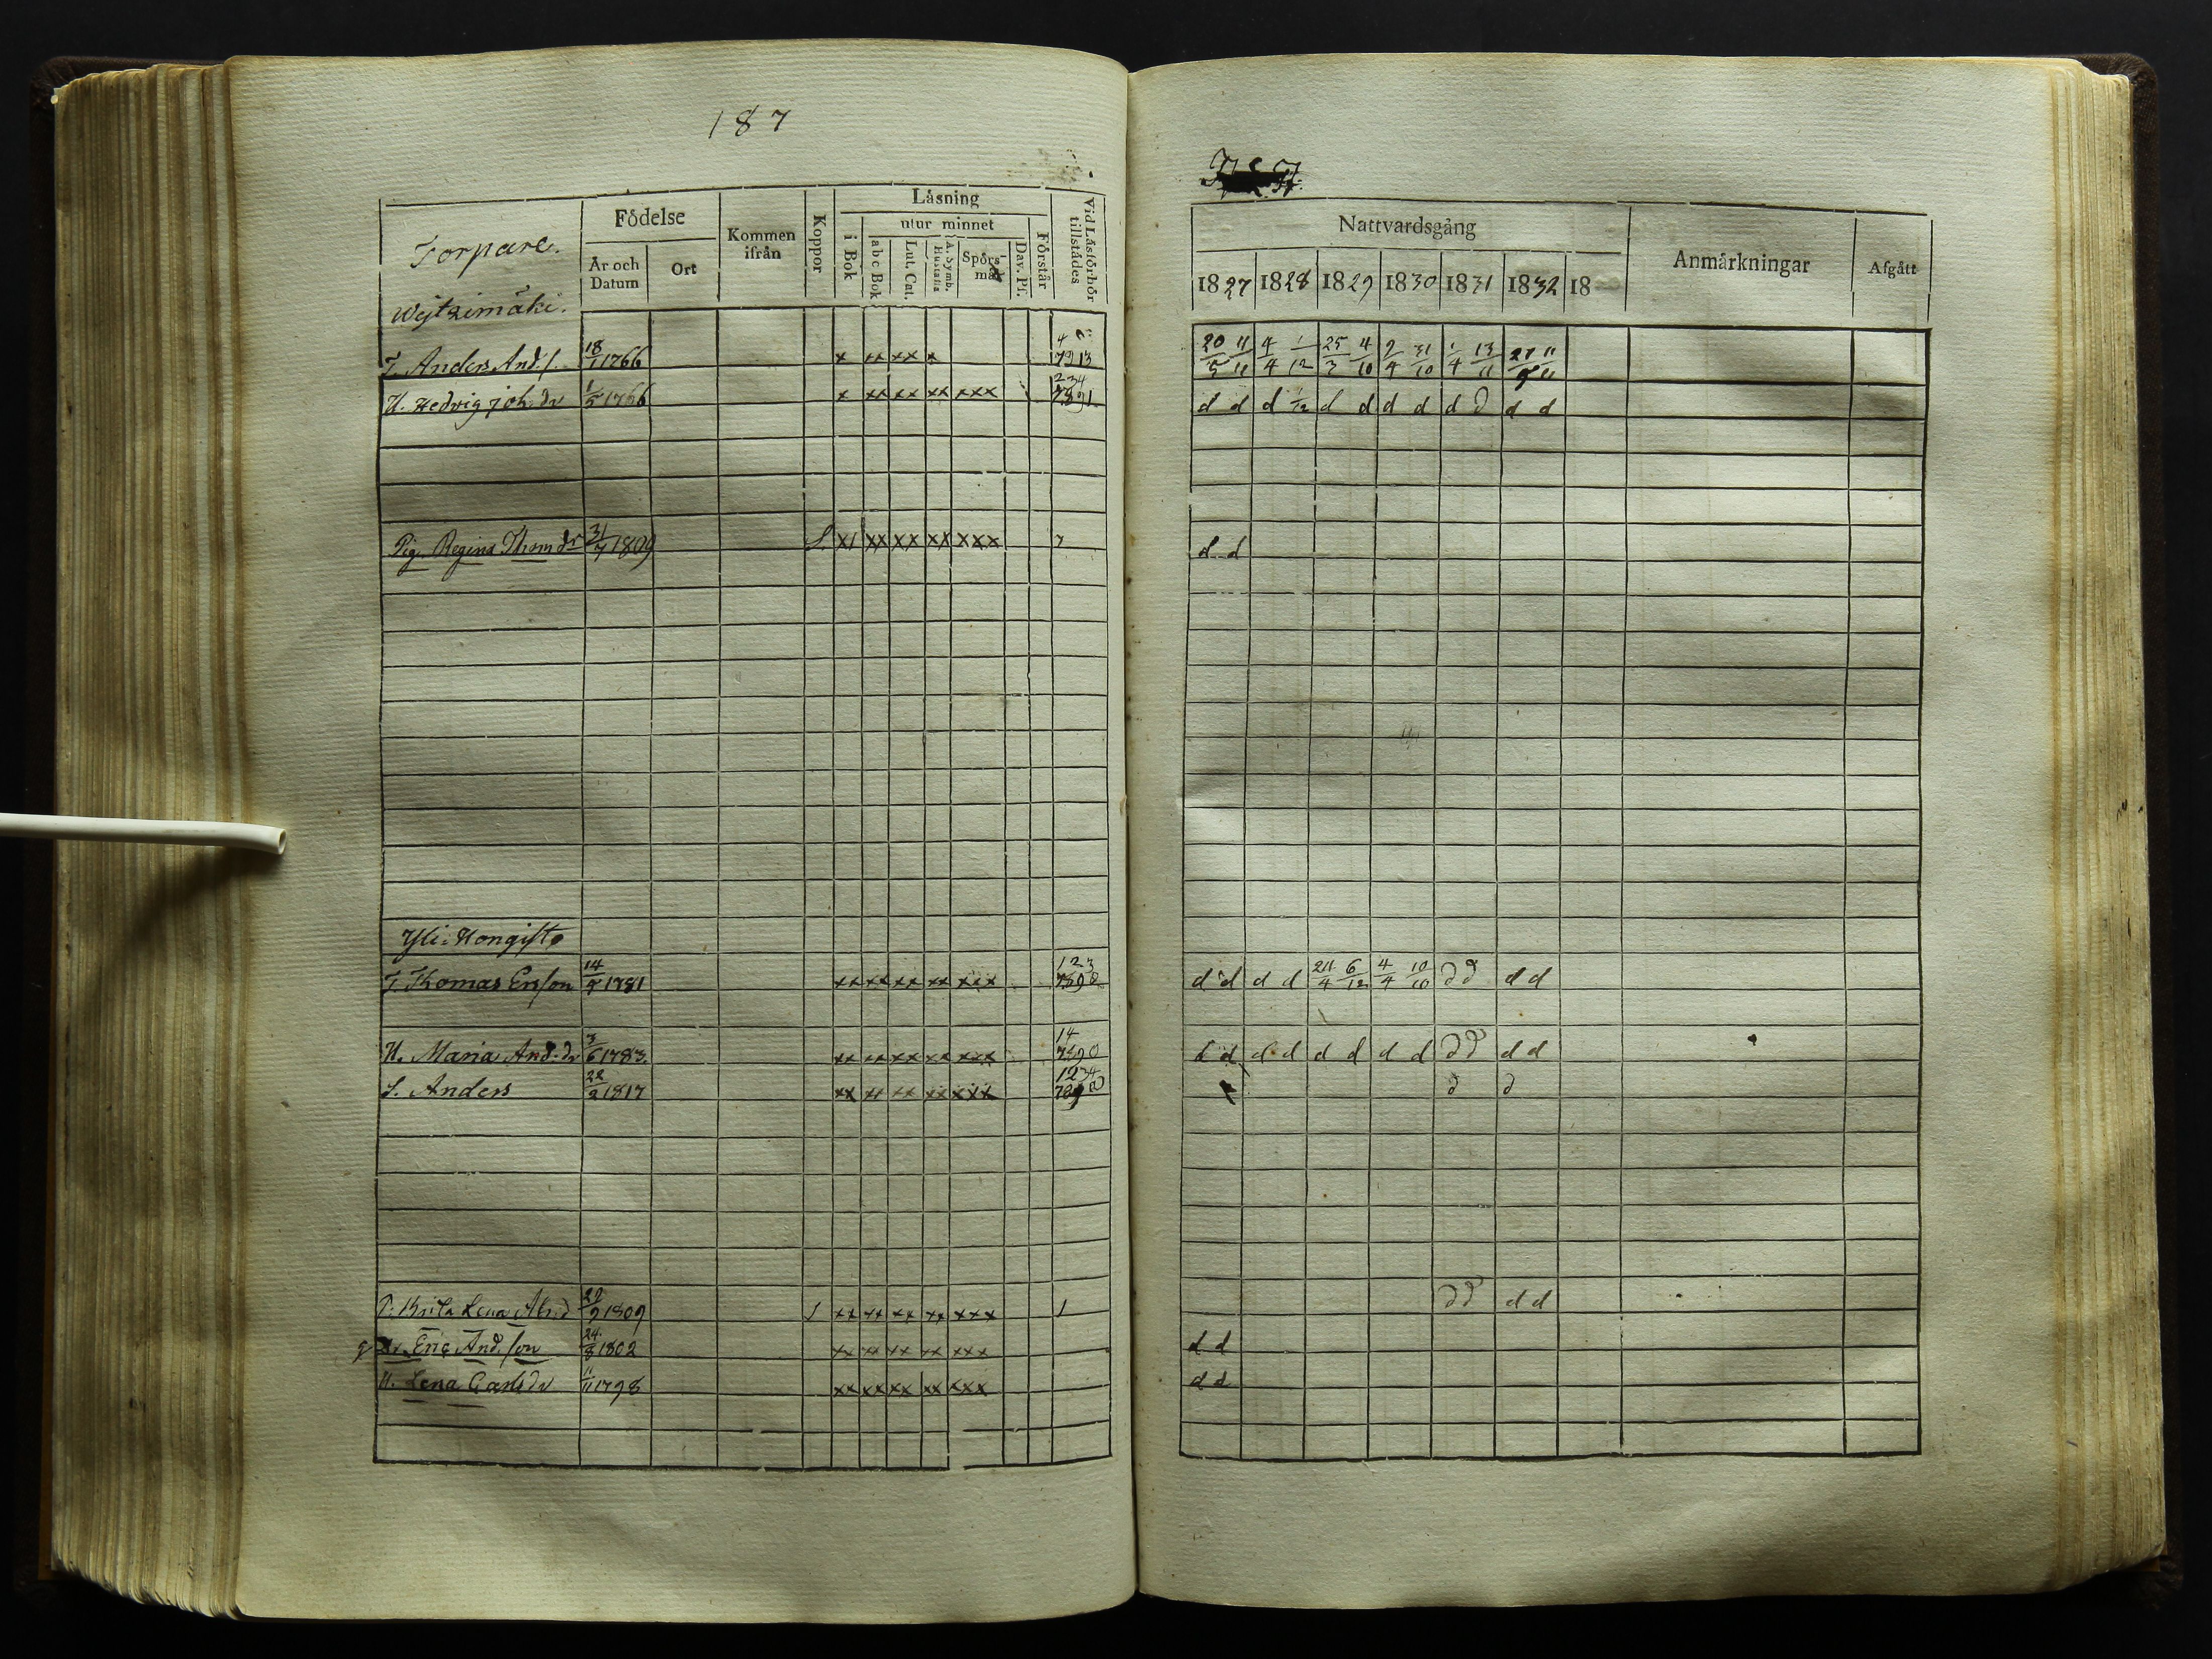 187
Torpare.
Födelse
År och Datum
Ort
Kommen ifrån
Koppor
Läsning
i Bok
utur minnet
abc Bok
Lut. Cat.
A. Symb. Hustafla
Spörs-mål
Dav. Ps.
Förstår
Vid Läsförhör tillstädes
Wejtzimäki.
T. Anders And.s. 18/1 1766 x xx xx x
H. Hedvig Joh.dr 1/5 1766 x xx xx xx xxx
Pig. Regina Thom dr 31/7 1809 s. x1 xx xx xx xxx 7
Yli-Hongisto
T. Thomas Ersson 14/9 1781 xx xx xx xx xxx
H. Maria And.dr 3/6 1783. xx xx xx xx xxx
S. Anders 22/2 1817 xx xx xx xx xxx
P. Brita Lena 29/9 1809 1 xx xx xx xx xxx 1
Dr. Eric And.son 24/8 1802 xx xx xx xx xxx
H. Lena Carlsdr 11/11 1798 xx xx xx xx xxx
Nattvardsgång
Anmärkningar
Afgått
1827 1828 1829 1830 1831 1832 18
20/5 11/11 4/4 1/12 25/3 4/10 9/4 31/10 1/4 13/11 27/5 11/11
d d d 1/12 d d d d d d d d
d d
d d d d 24/4 6/12 4/4 10/10 d d d d
d d d d d d d d d d d d
d d
d d d d
d d
d d